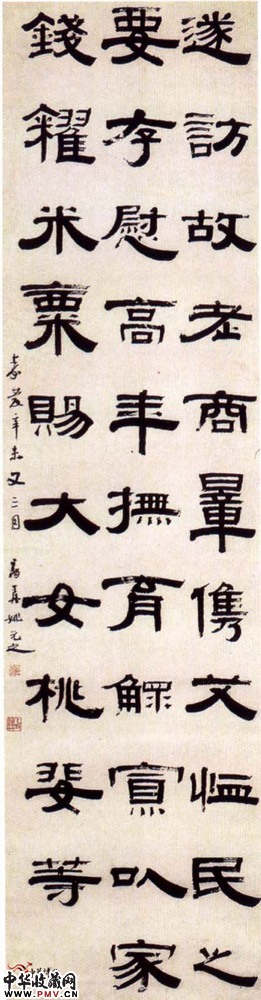 遂訪故老商量儁艾恤民之
要存慰高年撫育鰥寡以家
錢糴米粟賜大女桃斐等
嘉慶辛未又三月 薦青姚元之
中华收藏网
WWW.PMV.CN